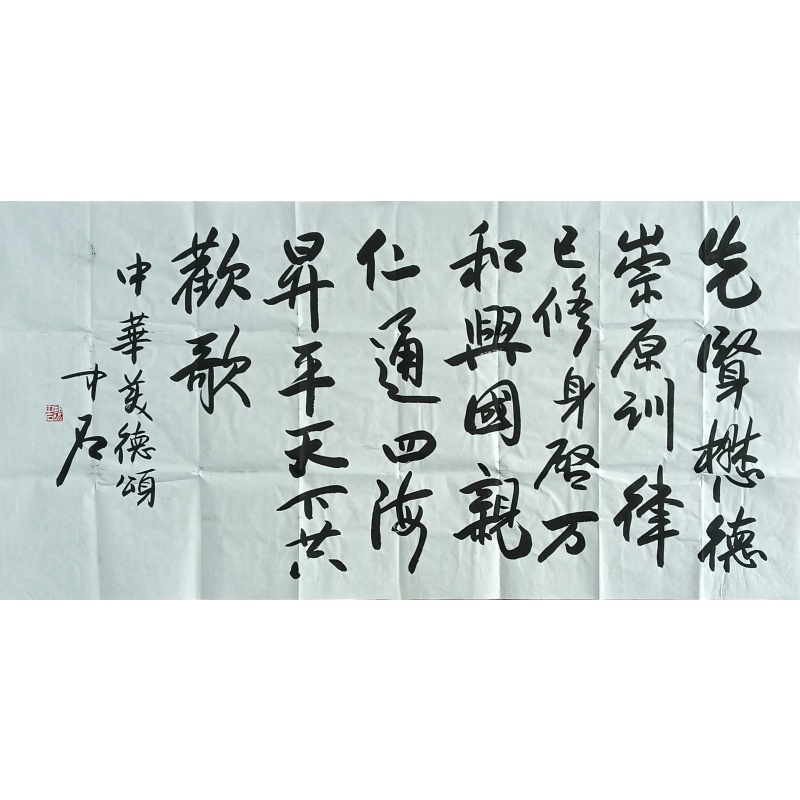 先賢懋德
崇原训律
己修身啓万
和興國親
仁通四海
昇平天下共
歡歌
中華美德頌
中石